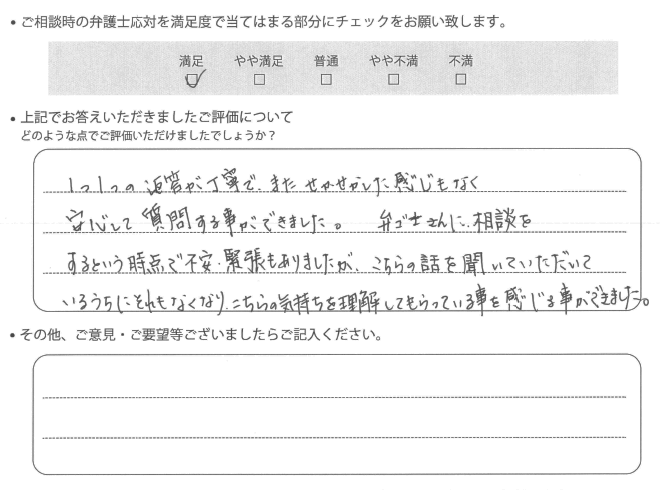 • ご相談時の弁護士応対を満足度で当てはまる部分にチェックをお願い致します。
満足 やや満足 普通 やや不満 不満
☑ □ □ □ □
• 上記でお答えいただきましたご評価について
どのような点でご評価いただけましたでしょうか？
1つ1つの返答が丁寧で、また せかせかした感じもなく
安心して 質問する事ができました。 弁ゴ士さんに、相談を
するという時点で不安・緊張もありましたが、こちらの話を聞いていただいて
いるうちにそれもなくなり、こちらの気持ちを理解してもらっている事を感じる事ができました。
• その他、ご意見・ご要望等ございましたらご記入ください。